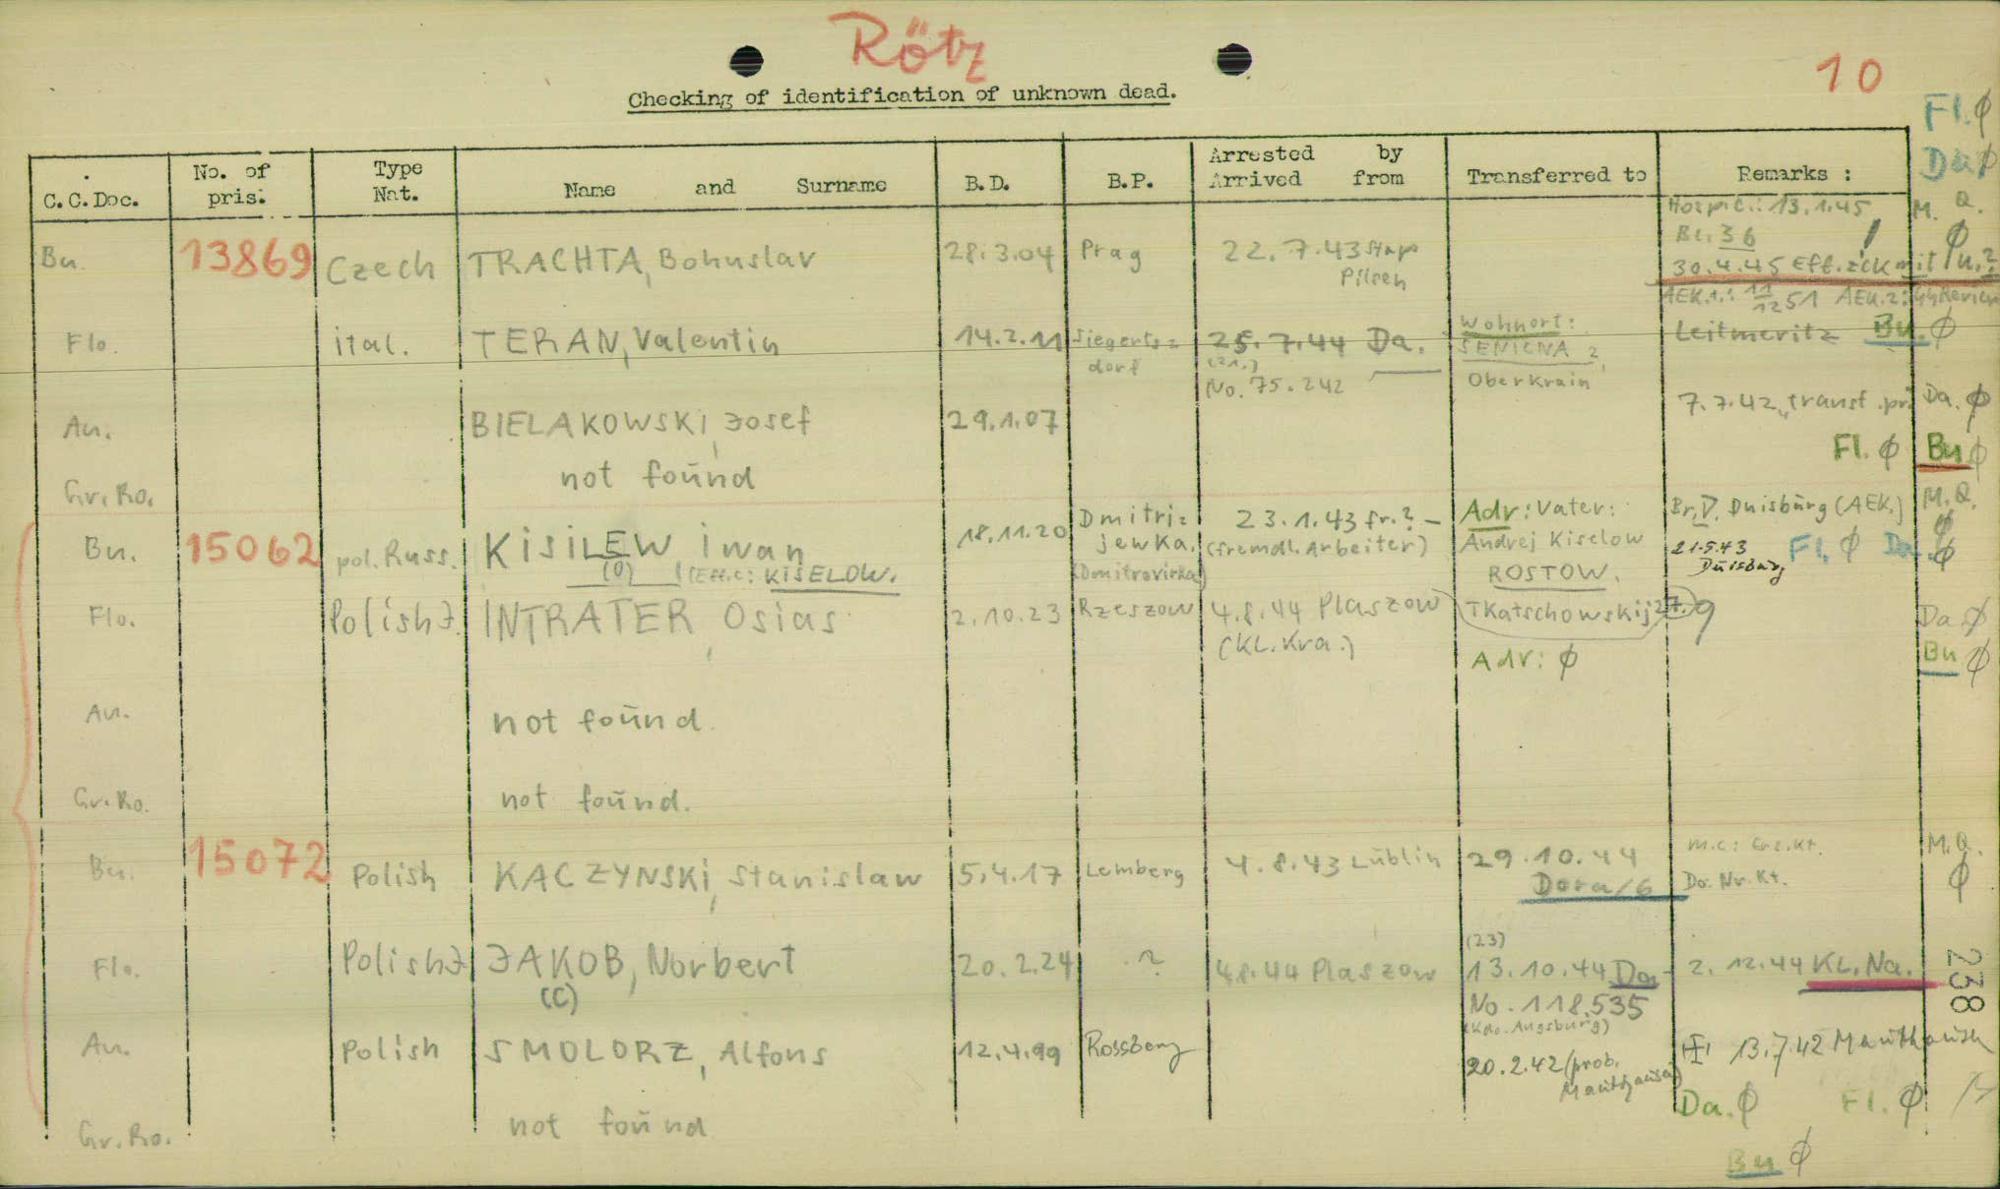 Rötz
10
Checking of identification of unknown dead.
Fl. ϕ
Da ϕ
C.C.Doc. No. of pris: Type Nat. Name and Surname B.D. B.P. Arrested by Arrived from Transferred to Remarks :
M. Q. ϕ
Bu. 13869 Czech TRACHTA, Bohuslav 28.3.04 Prag 22.7.43 Stapo Pilsen
Hospic.: 13.1.45
Bl. 36 !
30.4.45 Eff. zck mit
AEK.1.: 11/1251 AEK.2: Revier
Flo. ital. TERAN, Valentin 14.2.11 Siegerts=dorf 25.7.44 Da. Wohnort: Leitmeritz Bu. ϕ
(21.) No. 75.242 SENICNA ?, Oberkrain
An. BIELAKOWSKI, Josef 29.1.07 7.7.42 "transf. Da. ϕ
Fl. ϕ Bu ϕ
Gr. Ro. not found
Bu. 15062 pol. Russ. KISILEW Iwan 18.11.20 Dmitri=jewka. 23.1.43 fr. ? - Adv: Vater: Br. V. Duisburg (AEK.) M. Q. ϕ
(O) (Eff.c: KISELOW. (Dmitrovirka) (fremdl. Arbeiter) Andrej Kiselow 21.5.43 Duisburg Fl. ϕ Da. ϕ
ROSTOW.
Tkatschowskij 27.9
Flo. Polish J. INTRATER, Osias 2.10.23 Rzeszow 4.8.44 Plaszow Da. ϕ
(KL. Kra.) Adr: ϕ Bu ϕ
An. not found.
Gr. Ro. not found.
Bu. 15072 Polish KACZYNSKI, Stanislaw 5.4.17 Lemberg 4.8.43 Lublin 29.10.44 M.C: Ers. Kt. M.Q. ϕ
Dora/6 Do. Nr. Kt.
(23)
Flo. Polish J JAKOB, Norbert 20.2.24 ? 4.8.44 Plaszow 13.10.44 Da- 2.12.44 KL. Na.
(C) No. 118.535
(Kdo. Augsburg)
238
An. Polish SMOLORZ, Alfons 12.4.99 Rossberg 20.2.42 (prob. Mauthausen) 13.7.42 Mauthausen
Da. ϕ Fl. ϕ
Gr. Ro. not found
Bu ϕ